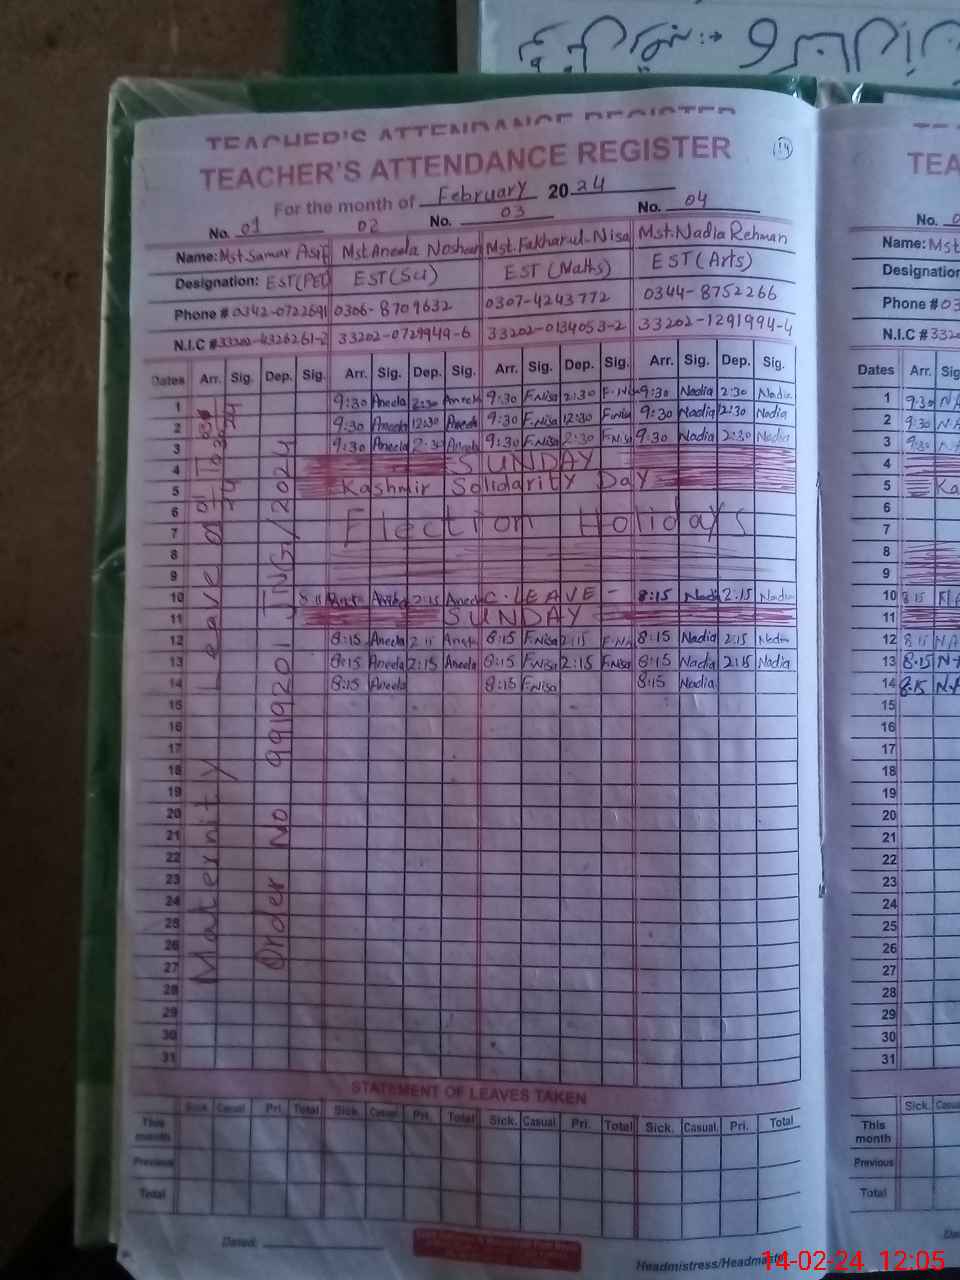 TEACHER'S ATTENDANCE REGISTER
TEACHER'S ATTENDANCE REGISTER
14
For the month of February 2024
No. 01 02 No. 03 No. 04
Name: Mst. Samar Asif Mst. Aneela Nosheen Mst. Fakhar-ul-Nisa Mst. Nadia Rehman
Designation: EST(PET) EST(Sci) EST (Maths) EST (Arts)
Phone # 0342-0722691 0306-8709632 0307-4243772 0344-8752266
N.I.C # 33202-0729949-6 33202-0134053-2 33202-1291994-4
Dates Arr. Sig. Dep. Sig. Arr. Sig. Dep. Sig. Arr. Sig. Dep. Sig. Arr. Sig. Dep. Sig.
1 9:30 Aneela 2:30 Aneela 9:30 F.Nisa 2:30 F.Nisa 9:30 Nadia 2:30 Nadia
2 9:30 Aneela 12:30 Aneela 9:30 F.Nisa 12:30 F.Nisa 9:30 Nadia 12:30 Nadia
3 9:30 Aneela 2:30 Aneela 9:30 F.Nisa 2:30 F.Nisa 9:30 Nadia 2:30 Nadia
4 SUNDAY
5 Kashmir Solidarity Day
6
7 Election Holidays
8
9
10 2:15 Aneela C. LEAVE - 8:15 Nadia 2:15 Nadia
11 SUNDAY
12 8:15 Aneela 2:15 Aneela 8:15 F.Nisa 2:15 F.Nisa 8:15 Nadia 2:15 Nadia
13 8:15 Aneela 2:15 Aneela 8:15 F.Nisa 2:15 F.Nisa 8:15 Nadia 2:15 Nadia
14 8:15 Aneela 8:15 F.Nisa 8:15 Nadia
15
16
17
18
19
20
21
22
23
24
25
26
27
28
29
30
31
Maternity Leave
Order No 9919201 /2024
STATEMENT OF LEAVES TAKEN
Sick. Casual Pri. Total Sick. Casual Pri. Total Sick. Casual Pri. Total Sick. Casual Pri. Total
This month
Previous
Total
Dated:
Headmistress/Headmaster
TEA
No.
Name: Mst
Designation
Phone # 03
N.I.C # 332
Dates Arr. Sig
1 9:30
2 9:30
3 9:30
4
5 Ka
6
7
8
9
10 8:15
11
12 8:15
13 8:15
14 8:15
15
16
17
18
19
20
21
22
23
24
25
26
27
28
29
30
31
Sick. Casu
This month
Previous
Total
14-02-24 12:05